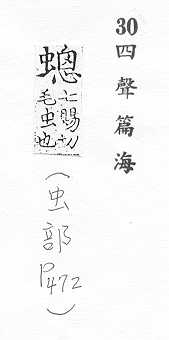 30四聲篇海
蟌
七賜切
毛虫也
（虫部P472）